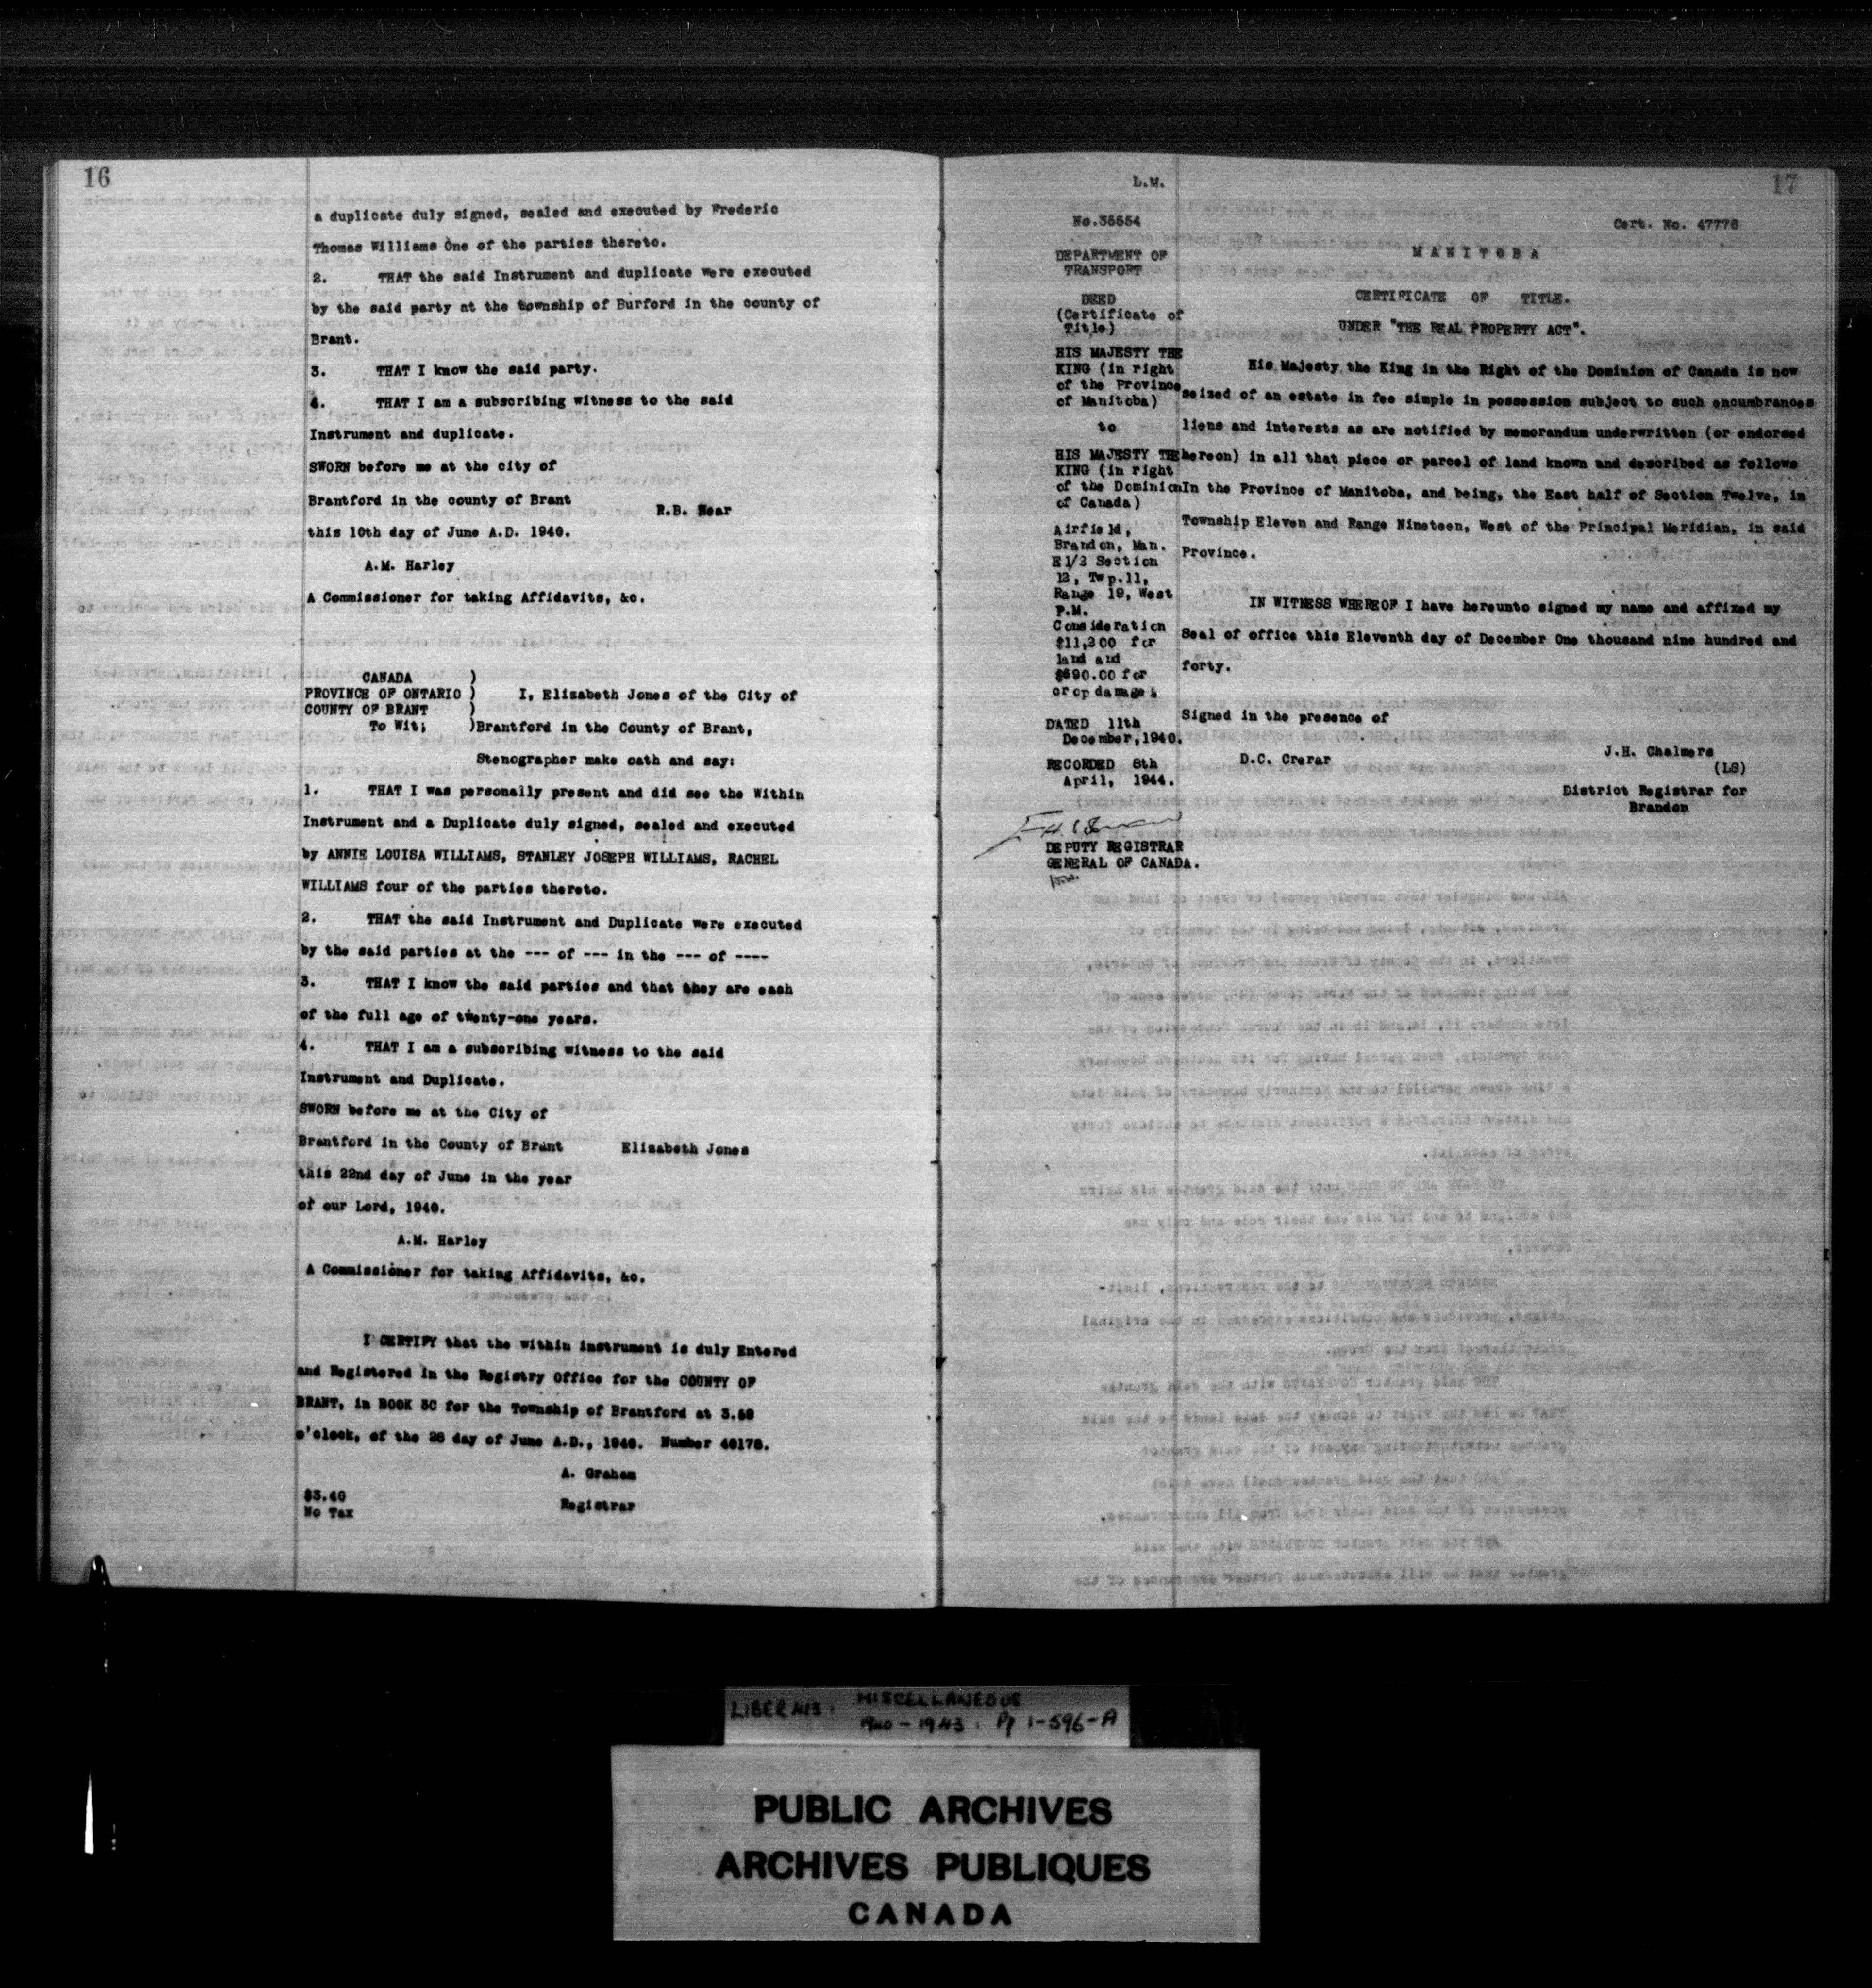 16
a duplicate duly signed, sealed and executed by Frederic
Thomas Williams One of the parties thereto.
2. THAT the said Instrument and duplicate were executed
by the said party at the township of Burford in the county of
Brant.
3. THAT I know the said party.
4. THAT I am a subscribing witness to the said
Instrument and duplicate.
SWORN before me at the city of
Brantford in the county of Brant
R.B. Near
this 10th day of June A.D. 1940.
A.M. Harley
A Commissioner for taking Affidavits, &c.
CANADA )
PROVINCE OF ONTARIO ) I, Elizabeth Jones of the City of
COUNTY OF BRANT )
To Wit; )Brantford in the County of Brant,
Stenographer make oath and say:
1. THAT I was personally present and did see the Within
Instrument and a Duplicate duly signed, sealed and executed
by ANNIE LOUISA WILLIAMS, STANLEY JOSEPH WILLIAMS, RACHEL
WILLIAMS four of the parties thereto.
2. THAT the said Instrument and Duplicate were executed
by the said parties at the --- of --- in the --- of ----
3. THAT I know the said parties and that they are each
of the full age of twenty-one years.
4. THAT I am a subscribing witness to the said
Instrument and Duplicate.
SWORN before me at the City of
Brantford in the County of Brant Elizabeth Jones
this 22nd day of June in the year
of our Lord, 1940.
A.M. Harley
A Commissioner for taking Affidavits, &c.
I CERTIFY that the within instrument is duly Entered
and Registered in the Registry Office for the COUNTY OF
BRANT, in BOOK 3C for the Township of Brantford at 3.59
o'clock, of the 28 day of June A.D., 1940. Number 40178.
A. Graham
$3.40
No Tax
Registrar
L.M.
17
No.35554
DEPARTMENT OF
TRANSPORT
DEED
(Certificate of
Title)
HIS MAJESTY THE
KING (in right
of the Province
of Manitoba)
to
HIS MAJESTY THE
KING (in right
of the Dominion
of Canada)
Airfield,
Brandon, Man.
E1/2 Section
12, Twp.11,
Range 19, West
P.M.
Consideration
$11,200 for
land and
$690.00 for
crop damage.
DATED 11th
December,1940.
RECORDED 8th
April, 1944.
DEPUTY REGISTRAR
GENERAL OF CANADA.
Cert. No. 47776
MANITOBA
CERTIFICATE OF TITLE.
UNDER "THE REAL PROPERTY ACT".
His Majesty the King in the Right of the Dominion of Canada is now
seized of an estate in fee simple in possession subject to such encumbrances
liens and interests as are notified by memorandum underwritten (or endorsed
hereon) in all that piece or parcel of land known and described as follows
In the Province of Manitoba, and being, the East half of Section Twelve, in
Township Eleven and Range Nineteen, West of the Principal Meridian, in said
Province.
IN WITNESS WHEREOF I have hereunto signed my name and affixed my
Seal of office this Eleventh day of December One thousand nine hundred and
forty.
Signed in the presence of
J.H. Chalmers
D.C. Crerar
(LS)
District Registrar for
Brandon
LIBER 413: MISCELLANEOUS
1940-1943: Pp 1-596-A
PUBLIC ARCHIVES
ARCHIVES PUBLIQUES
CANADA